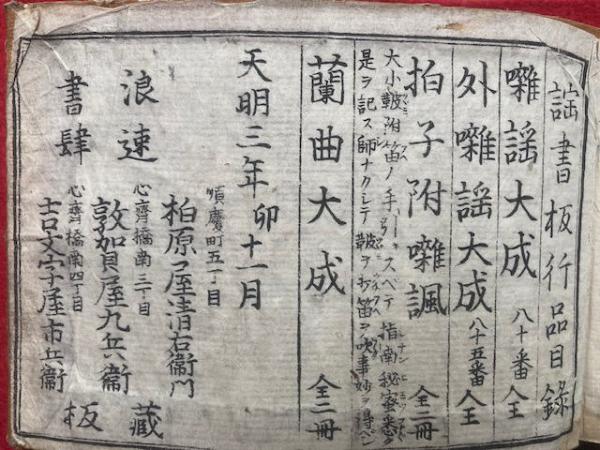 謡書板行品目録
囃謡大成 八十番 全
外囃謡大成 八十五番 全
拍子附囃諷 全二冊
大小鼓附笛ノ手引ヲスベテ指南秘蜜悉ク
是ヲ記ス師ナクシテ鼓ヲ打笛ヲ吹事妙ヲ得ベシ
蘭曲大成 全二冊
天明三年卯十一月
順慶町五丁目
柏原屋清右衛門
浪速 心齊橋南三丁目
敦賀屋九兵衛 藏
書肆 心齊橋南四丁目
吉文字屋市兵衛 板